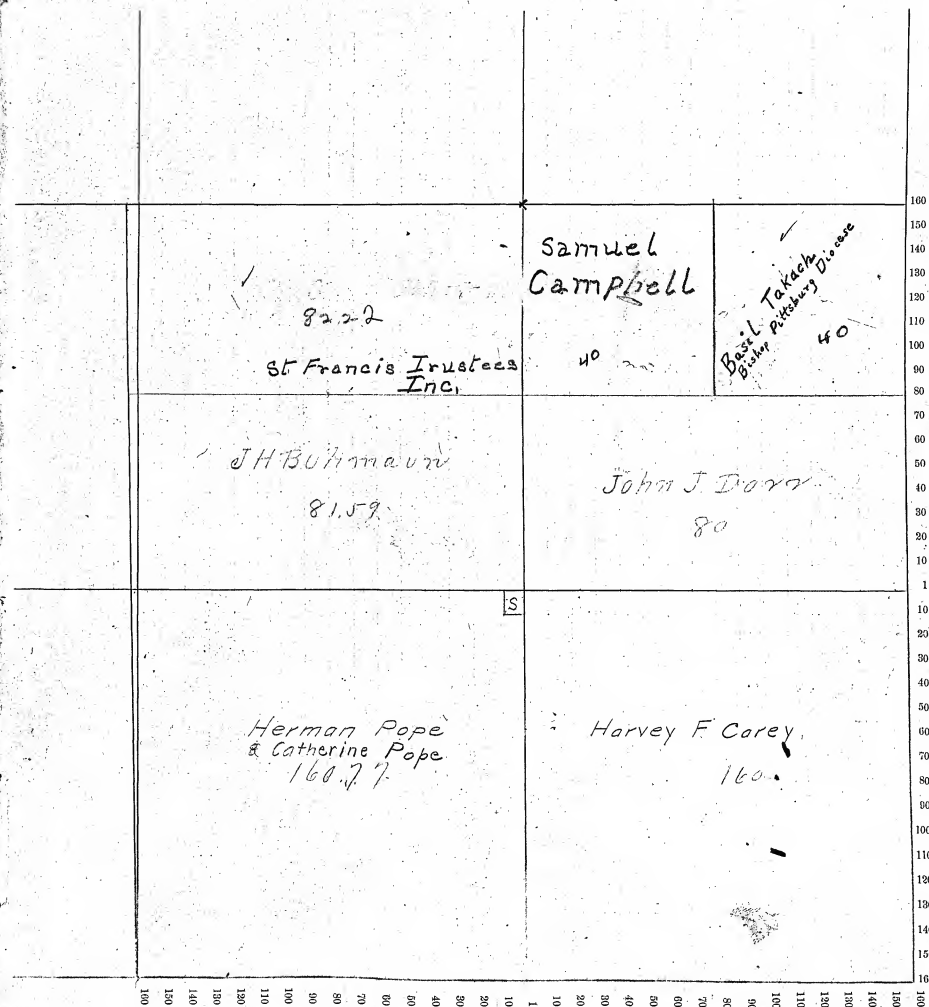 Samuel
Campbell
40
Basil Takach
Bishop Pittsburg Diocese
40
82.22
St Francis Trustees
Inc.
J H Buhmann
81.59
John J Dorr
80
S
Herman Pope
& Catherine Pope
160.77
Harvey F Carey
160
160
150
140
130
120
110
100
90
80
70
60
50
40
30
20
10
1
10
20
30
40
50
60
70
80
90
100
110
120
130
140
15
16
160 150 140 130 120 110 100 90 80 70 60 50 40 30 20 10 1 10 20 30 40 50 60 70 80 90 100 110 120 130 140 150 160